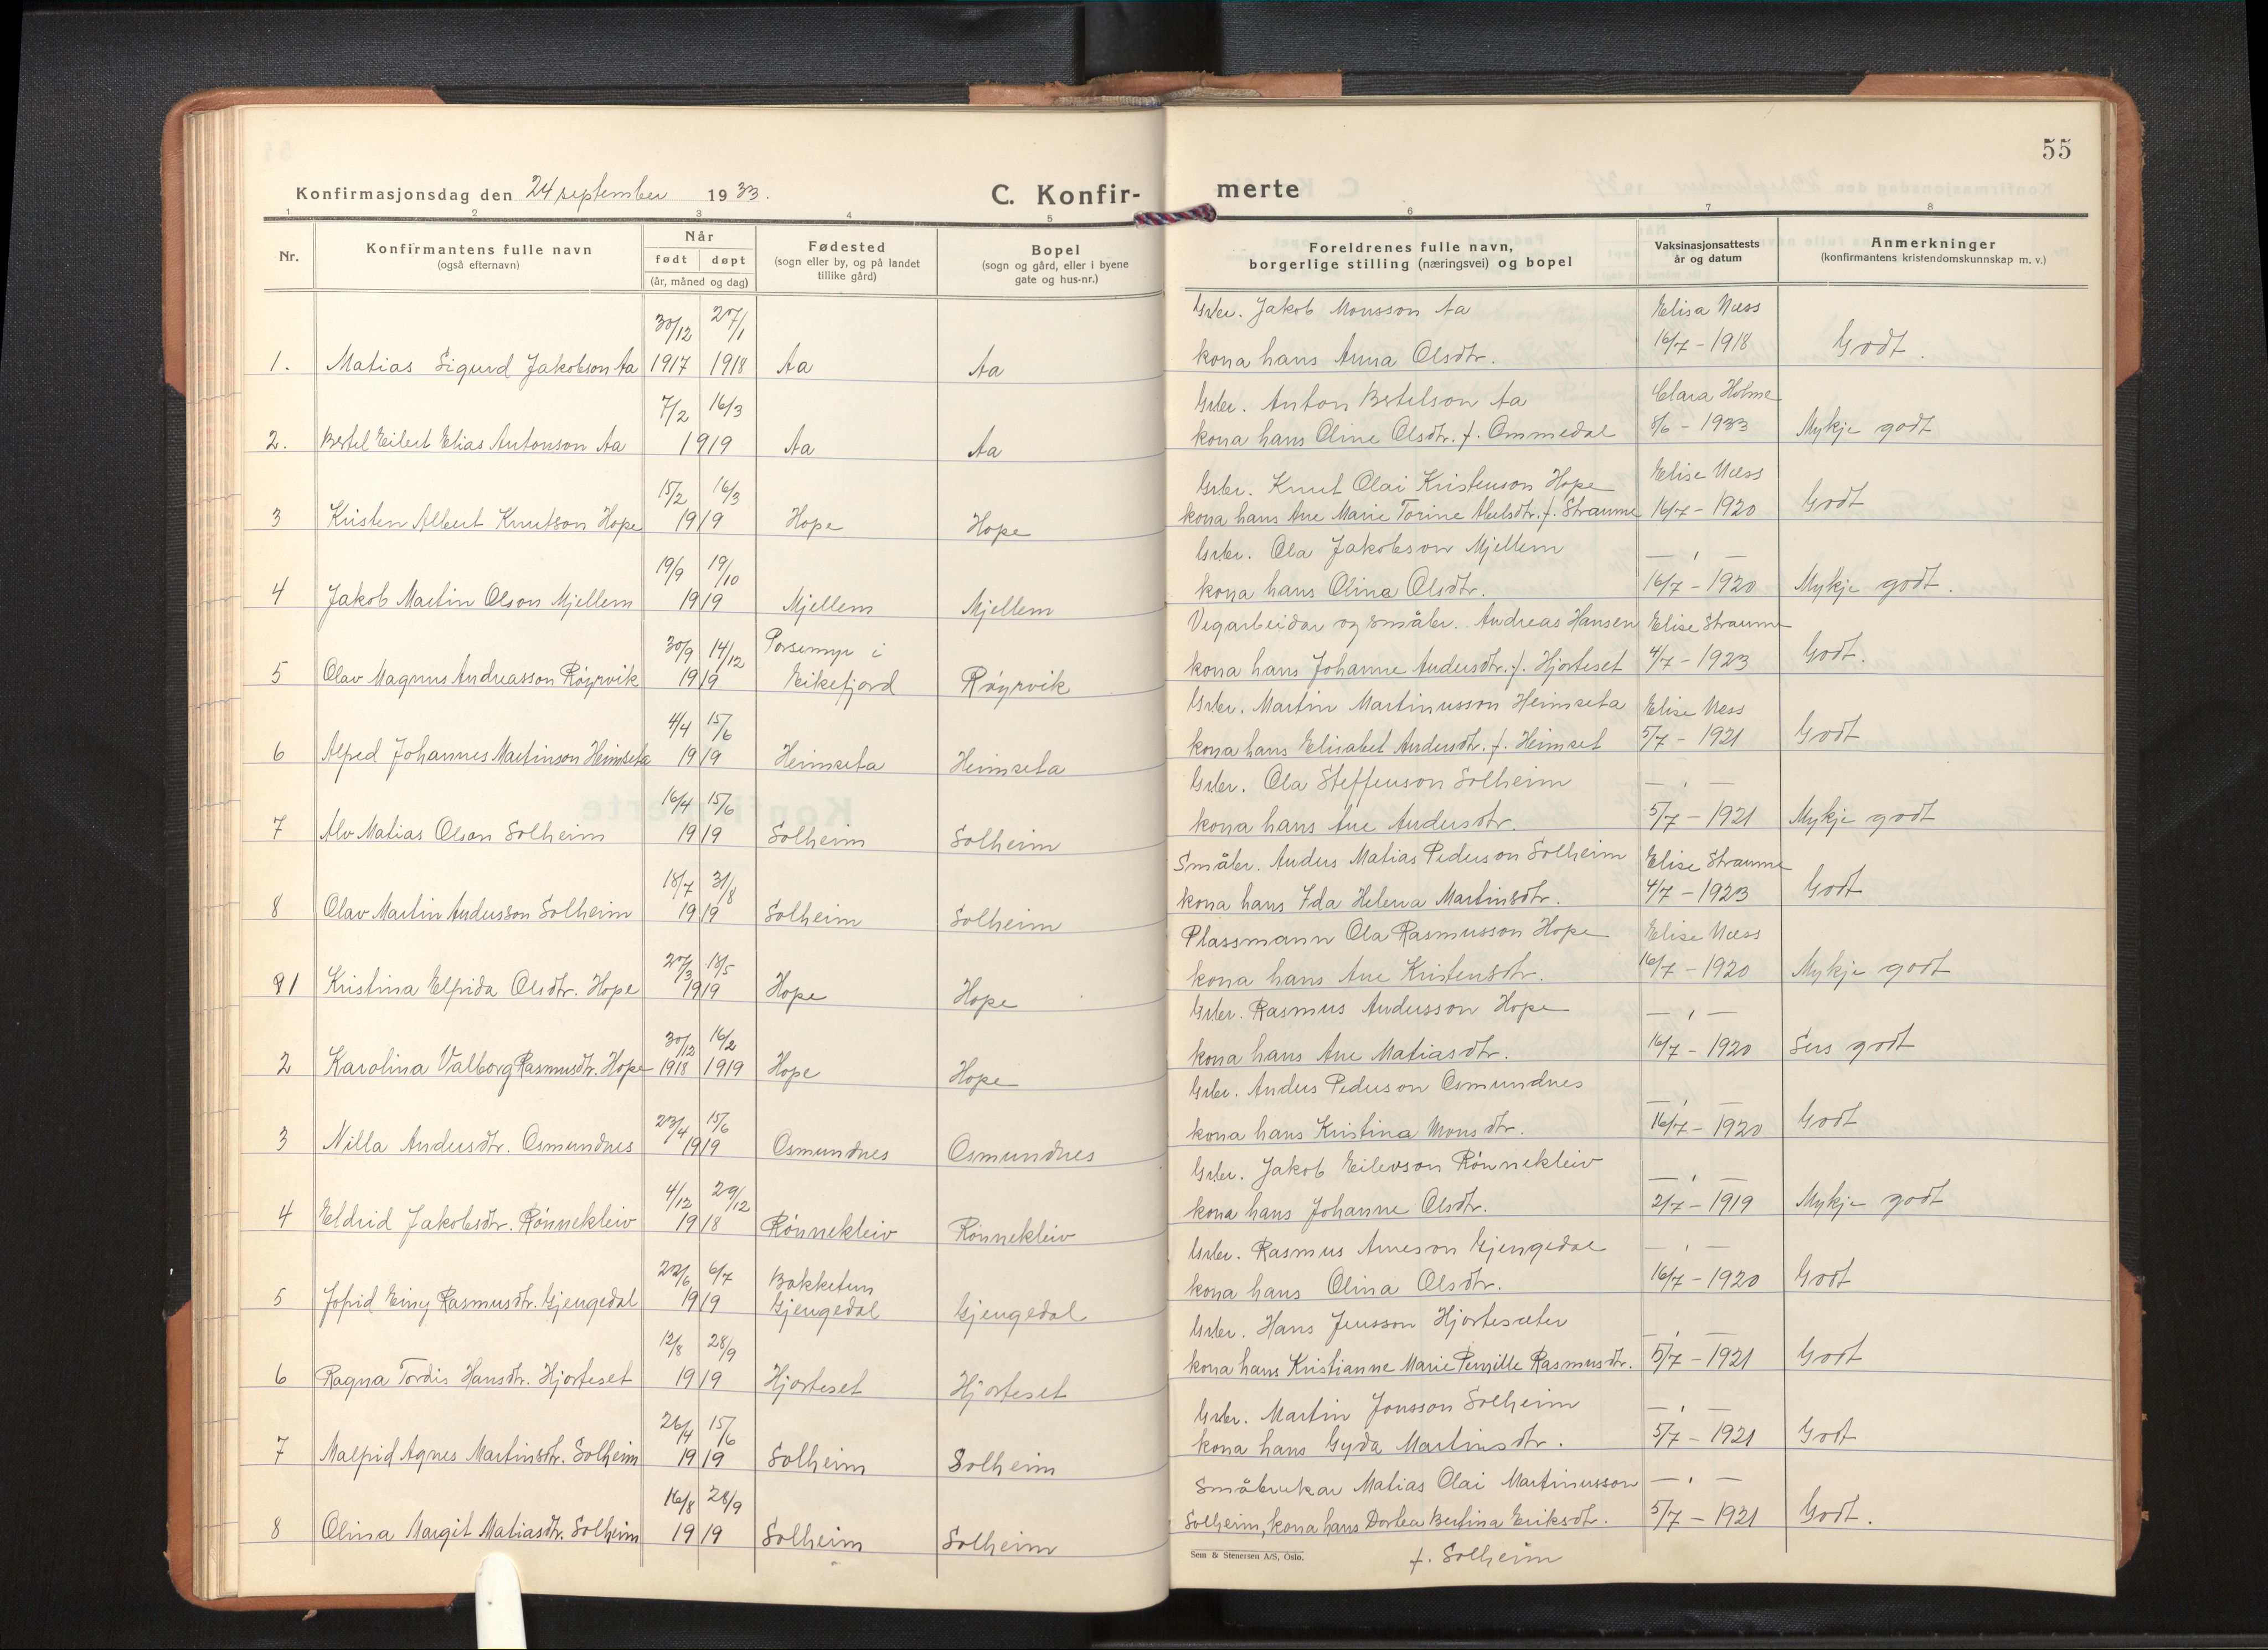 55
Konfirmasjonsdag den 24 september 1933.
C. Konfir-
merte
1 2 3 4 5 6 7 8
Nr.
Konfirmantens fulle navn
(også efternavn)
Når
født døpt
(år, måned og dag)
Fødested
(sogn eller by, og på landet
tillike gård)
Bopel
(sogn og gård, eller i byene
gate og hus-nr.)
Foreldrenes fulle navn,
borgerlige stilling (næringsvei) og bopel
Vaksinasjonsattests
år og datum
Anmerkninger
(konfirmantens kristendomskunnskap m. v.)
30/12 27/1 Grbr. Jakob Monsson Aa Elisa Næss
1. Matias Sigurd Jakobson Aa 1917 1918 Aa Aa kona hans Anna Olsdtr. 16/7 - 1918 Godt.
7/2 16/3 Grbr. Anton Bertelson Aa Clara Holme
2. Bertel Eilert Elias Antonson Aa 1919 Aa Aa kona hans Oline Olsdtr. f. Ommedal 8/6 - 1933 Mykje godt
15/2 16/3 Grbr. Knut Olai Kristenson Hope Elise Næss
3 Kristen Albert Knutson Hope 1919 Hope Hope kona hans Ane Marie Torine Abelsdtr. f. Straume 16/7 - 1920 Godt
19/9 19/10 Grbr. Ola Jakobson Mjellem — " —
4 Jakob Martin Olson Mjellem 1919 Mjellem Mjellem kona hans Olina Olsdtr. 16/7 - 1920 Mykje godt.
30/9 14/12 Vegarbeidar og småbr. Andreas Hansen Elise Straume
5 Olav Magnus Andreasson Røyrvik 1919 i Eikefjord Røyrvik kona hans Johanne Andersdtr. f. Hjorteset 4/7 - 1923 Godt.
4/4 15/6 Grbr. Martin Martinusson Heimseta Elise Ness
6 Alfred Johannes Martinson Heimseta 1919 Heimseta Heimseta kona hans Elisabet Andersdtr. f. Heimset 5/7 - 1921 Godt
16/4 15/6 Grbr. Ola Steffenson Solheim — " —
7 Alv Matias Olson Solheim 1919 Solheim Solheim kona hans Ane Andersdtr. 5/7 - 1921 Mykje godt
18/7 31/8 Småbr. Anders Matias Pederson Solheim Elise Straume
8 Olav Martin Andersson Solheim 1919 Solheim Solheim kona hans Ida Helena Martinsdtr. 4/7 - 1923 Godt
27/3 18/5 Plassmann Ola Rasmusson Hope Elise Næss
1 Kristina Elfrida Olsdtr. Hope 1919 Hope Hope kona hans Ane Kristensdtr. 16/7 - 1920 Mykje godt
30/12 16/2 Grbr. Rasmus Andersson Hope — " —
2 Karolina Valborg Rasmusdtr. Hope 1918 1919 Hope Hope kona hans Ane Matiasdtr. 16/7 - 1920 Sers godt
23/4 15/6 Grbr. Anders Pederson Osmundnes — " —
3 Nilla Andersdtr. Osmundnes 1919 Osmundnes Osmundnes kona hans Kristina Monsdtr. 16/7 - 1920 Godt
4/12 29/12 Grbr. Jakob Eilevson Rønnekleiv — " —
4 Eldrid Jakobsdtr. Rønnekleiv 1918 Rønnekleiv Rønnekleiv kona hans Johanne Olsdtr. 2/7 - 1919 Mykje godt
22/6 6/7 Bakketun Grbr. Rasmus Arneson Gjengedal — " —
5 Jofrid Einy Rasmusdtr. Gjengedal 1919 Gjengedal Gjengedal kona hans Olina Olsdtr. 16/7 - 1920 Godt
12/8 28/9 Grbr. Hans Jensson Hjortesæter — " —
6 Ragna Tordis Hansdtr. Hjorteset 1919 Hjorteset Hjorteset kona hans Kristianne Marie Pernille Rasmusdtr. 5/7 - 1921 Godt
26/4 15/6 Grbr. Martin Jonsson Solheim — " —
7 Malfrid Agnes Martinsdtr. Solheim 1919 Solheim Solheim kona hans Gyda Martinsdtr. 5/7 - 1921 Godt
16/8 28/9 Småbrukar Matias Olai Martinusson — " —
8 Olina Margit Matiasdtr. Solheim 1919 Solheim Solheim Solheim, kona hans Dortea Bertina Eriksdtr. 5/7 - 1921 Godt.
f. Solheim
Sem & Stenersen A/S, Oslo.